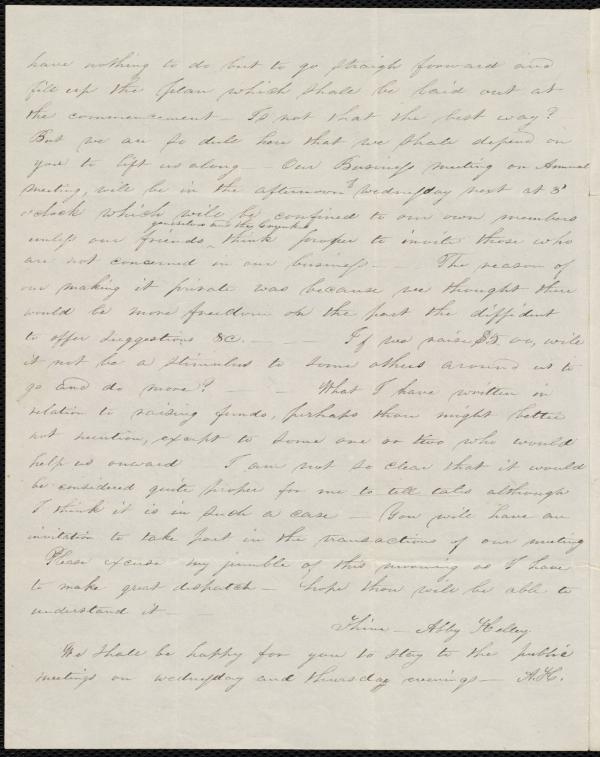 have nothing to do but to go straigh forward and
fill up the plan which shall be laid out at
the commencement – Is not that the best way?
But we are so dull here that we shall depend on
you to lift us along – Our Business meeting or Annual
meeting, will be in the afternoon of wednesday next at 3
o'clock which will be confined to our own members
yourselves and the
unless our friends, think proper to invite those who
are not concerned in our business – – The reason of
our making it private was because we thought there
would be more freedom on the part the diffident
to offer suggestions &c. – – – If we raise will
it not be a stimulus to some others around us to
go and do more? – – What I have written in
relation to raising funds, perhaps thou might better
not mention, except to some one or two who would
help us onward I am not so clear that it would
be considered quite proper for me to tell tales although
I think it is in such a case – You will have an
invitation to take part in the transactions of our meeting
Please excuse my jumble of this morning as I have
to make great dispatch – hope thou will be able to
understand it – –
Thine – Abby Kelley
We shall be happy for you to stay to the public
meetings on wednesday and thursday evenings – A.K.